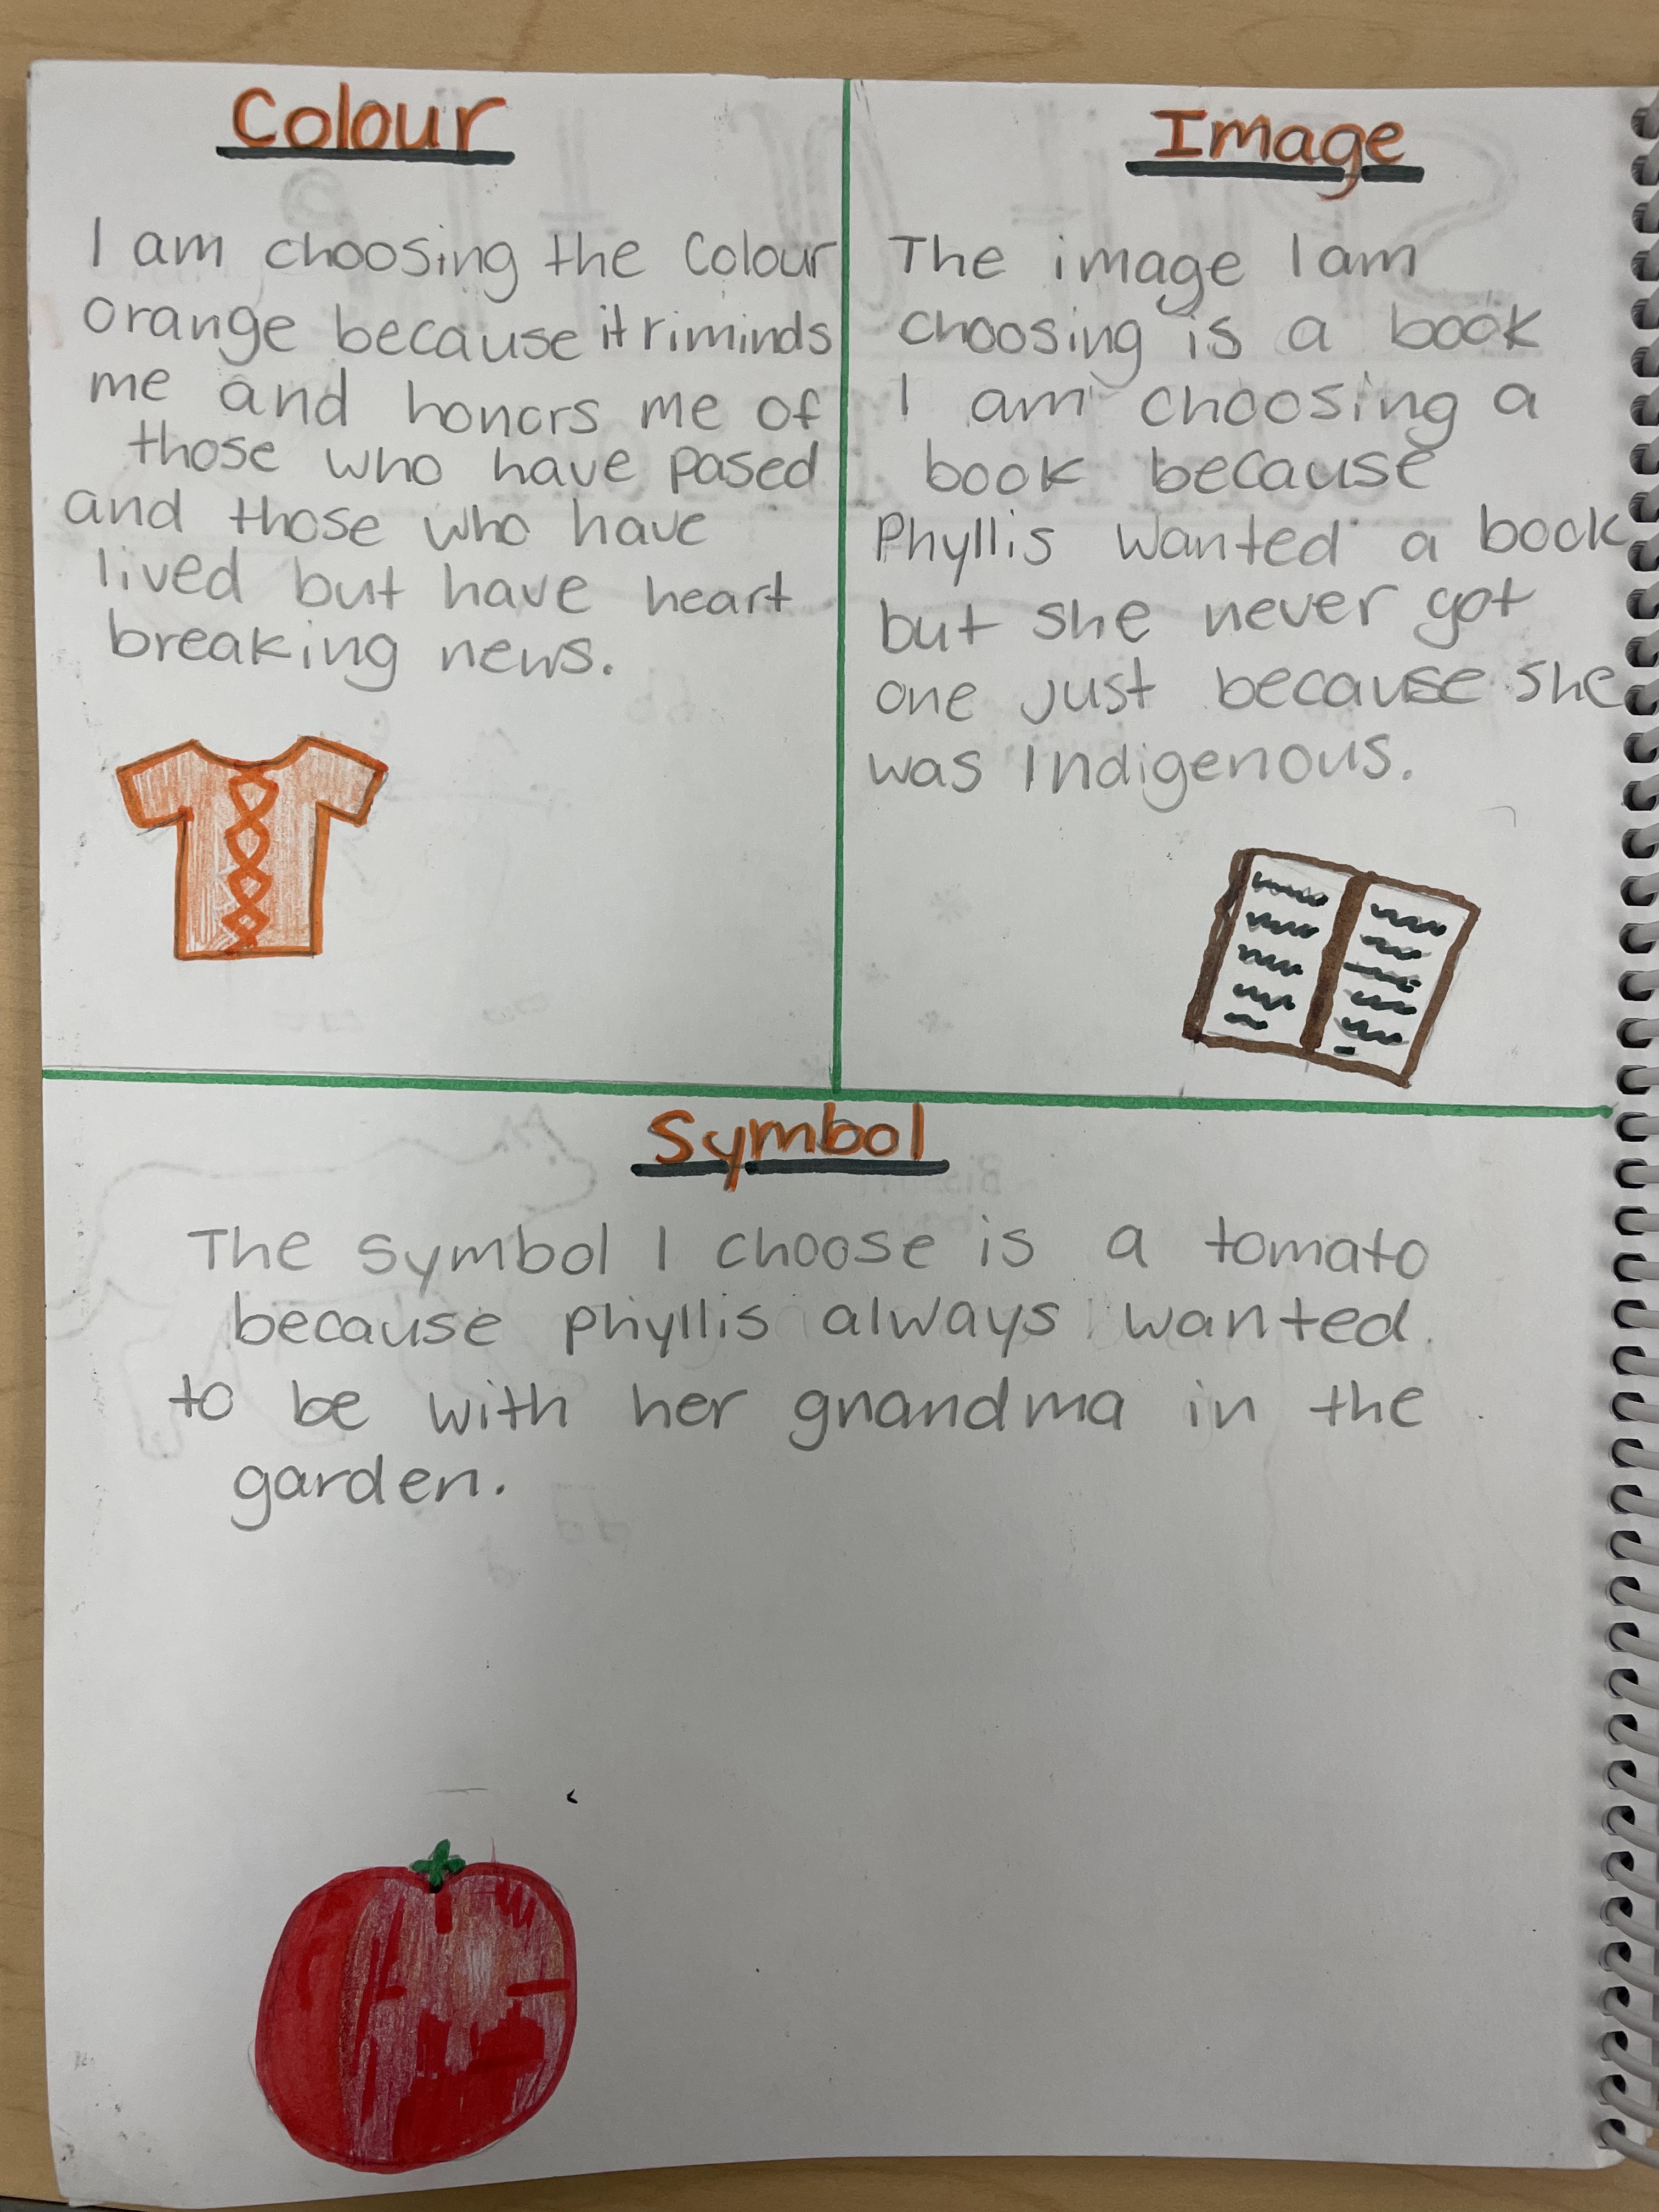 Colour
I am choosing the Colour
orange because it riminds
me and honors me of
those who have pased
and those who have
lived but have heart
breaking news.
Image
The image I am
choosing is a book
I am choosing a
book because
Phyllis wanted a book
but she never got
one just because she
was Indigenous.
Symbol
The symbol I choose is a tomato
because phyllis always wanted
to be with her gnandma in the
garden.